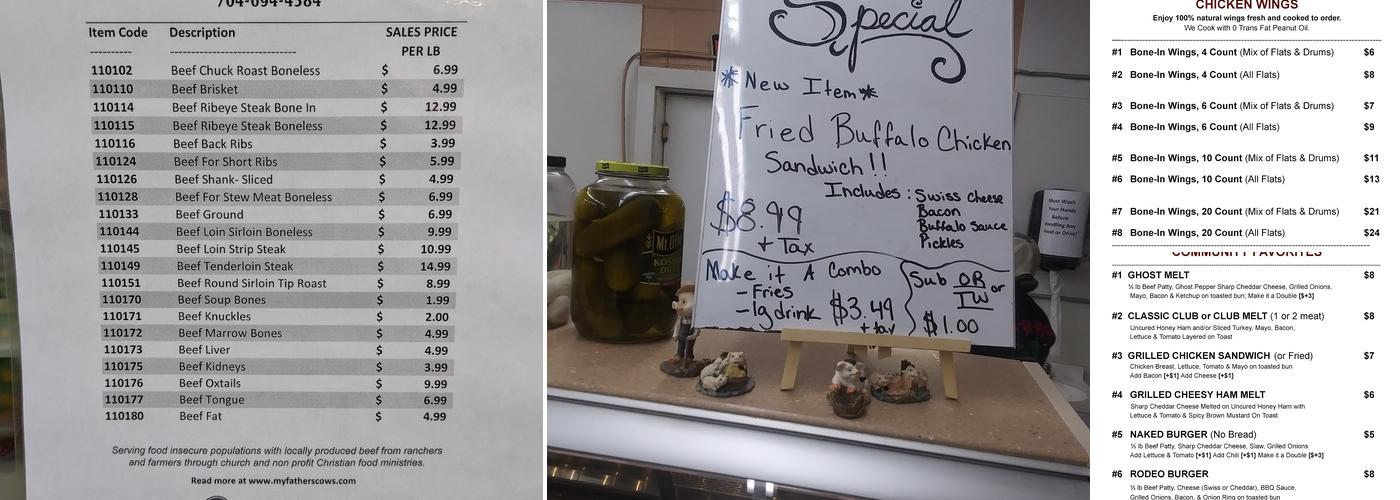 704-694-4384
Item Code Description SALES PRICE
PER LB
110102 Beef Chuck Roast Boneless $ 6.99
110110 Beef Brisket $ 4.99
110114 Beef Ribeye Steak Bone In $ 12.99
110115 Beef Ribeye Steak Boneless $ 12.99
110116 Beef Back Ribs $ 3.99
110124 Beef For Short Ribs $ 5.99
110126 Beef Shank- Sliced $ 4.99
110128 Beef For Stew Meat Boneless $ 6.99
110133 Beef Ground $ 6.99
110144 Beef Loin Sirloin Boneless $ 9.99
110145 Beef Loin Strip Steak $ 10.99
110149 Beef Tenderloin Steak $ 14.99
110151 Beef Round Sirloin Tip Roast $ 8.99
110170 Beef Soup Bones $ 1.99
110171 Beef Knuckles $ 2.00
110172 Beef Marrow Bones $ 4.99
110173 Beef Liver $ 4.99
110175 Beef Kidneys $ 3.99
110176 Beef Oxtails $ 9.99
110177 Beef Tongue $ 6.99
110180 Beef Fat $ 4.99
Serving food insecure populations with locally produced beef from ranchers
and farmers through church and non profit Christian food ministries.
Read more at www.myfatherscows.com
Special
*New Item*
Fried Buffalo Chicken
Sandwich!!
Includes: Swiss cheese
Bacon
Buffalo Sauce
Pickles
$8.99
+ Tax
Make it A Combo
- Fries
- lg drink $3.49
+ tax
Sub OR or
TW
$1.00
Mt Olive
KOSHER
Must Wash
Your Hands
Before
Handling Any
Food or Drink!
CHICKEN WINGS
Enjoy 100% natural wings fresh and cooked to order.
We Cook with 0 Trans Fat Peanut Oil.
#1 Bone-In Wings, 4 Count (Mix of Flats & Drums) $6
#2 Bone-In Wings, 4 Count (All Flats) $8
#3 Bone-In Wings, 6 Count (Mix of Flats & Drums) $7
#4 Bone-In Wings, 6 Count (All Flats) $9
#5 Bone-In Wings, 10 Count (Mix of Flats & Drums) $11
#6 Bone-In Wings, 10 Count (All Flats) $13
#7 Bone-In Wings, 20 Count (Mix of Flats & Drums) $21
#8 Bone-In Wings, 20 Count (All Flats) $24
COMMUNITY FAVORITES
#1 GHOST MELT $8
½ lb Beef Patty, Ghost Pepper Sharp Cheddar Cheese, Grilled Onions,
Mayo, Bacon & Ketchup on toasted bun; Make it a Double [$+3]
#2 CLASSIC CLUB or CLUB MELT (1 or 2 meat) $8
Uncured Honey Ham and/or Sliced Turkey, Mayo, Bacon,
Lettuce & Tomato Layered on Toast
#3 GRILLED CHICKEN SANDWICH (or Fried) $7
Chicken Breast, Lettuce, Tomato & Mayo on toasted bun
Add Bacon [+$1] Add Cheese [+$1]
#4 GRILLED CHEESY HAM MELT $6
Sharp Cheddar Cheese Melted on Uncured Honey Ham with
Lettuce & Tomato & Spicy Brown Mustard On Toast
#5 NAKED BURGER (No Bread) $5
½ lb Beef Patty, Sharp Cheddar Cheese, Slaw, Grilled Onions
Add Lettuce & Tomato [+$1] Add Chili [+$1] Make it a Double [$+3]
#6 RODEO BURGER $8
½ lb Beef Patty, Cheese (Swiss or Cheddar), BBQ Sauce,
Grilled Onions, Bacon, & Onion Ring on toasted bun